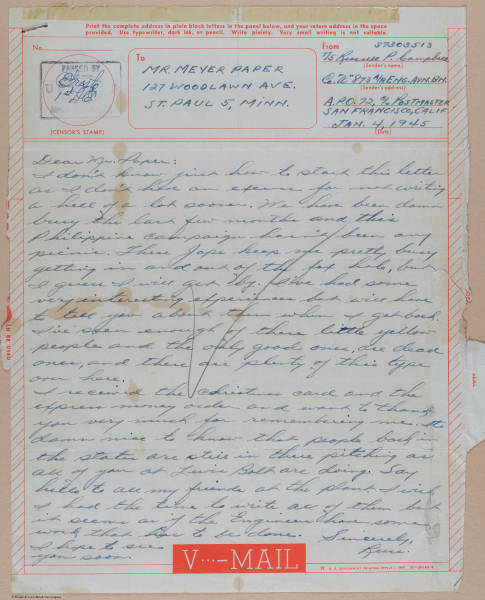 Print the complete address in plain block letters in the panel below, and your return address in the space
provided. Use typewriter, dark ink, or pencil. Write plainly. Very small writing is not suitable.
No.
PASSED BY
U
(CENSOR'S STAMP)
To
MR. MEYER PAPER
127 WOODLAWN AVE.
ST. PAUL 5, MINN.
From
37303513
T/5 Russell P. Campbell
(Sender's name)
Co. "A" 873 ENG. AVN. BN.
(Sender's address)
A.P.O. 72, c/o POSTMASTER
SAN FRANCISCO, CALIF.
JAN. 4, 1945
(Date)
Dear Mr. Paper:
I don't know just how to start this letter
as I don't have an excuse for not writing
a hell of a lot sooner. We have been damn
busy the last few months and this
Philippine campaign hasn't been any
picnic. These Japs keep me pretty busy
getting in and out of the fox hole, but
I guess I will get by. I've had some
very interesting experiences but will have
to tell you about them when I get back.
I've seen enough of these little yellow
people and the only good ones are dead
ones, and there are plenty of this type
over here.
I received the Christmas card and the
express money order and want to thank
you very much for remembering me. It's
damn nice to know that people back in
the states are still in there pitching as
all of you at Lewis Bolt are doing. Say
hello to all my friends at the plant. I wish
I had the time to write all of them but
it seems as if the Engineers have some
work that has to be done.
Sincerely,
Russ.
I hope to see
you soon.
V···—MAIL
U. S. GOVERNMENT PRINTING OFFICE